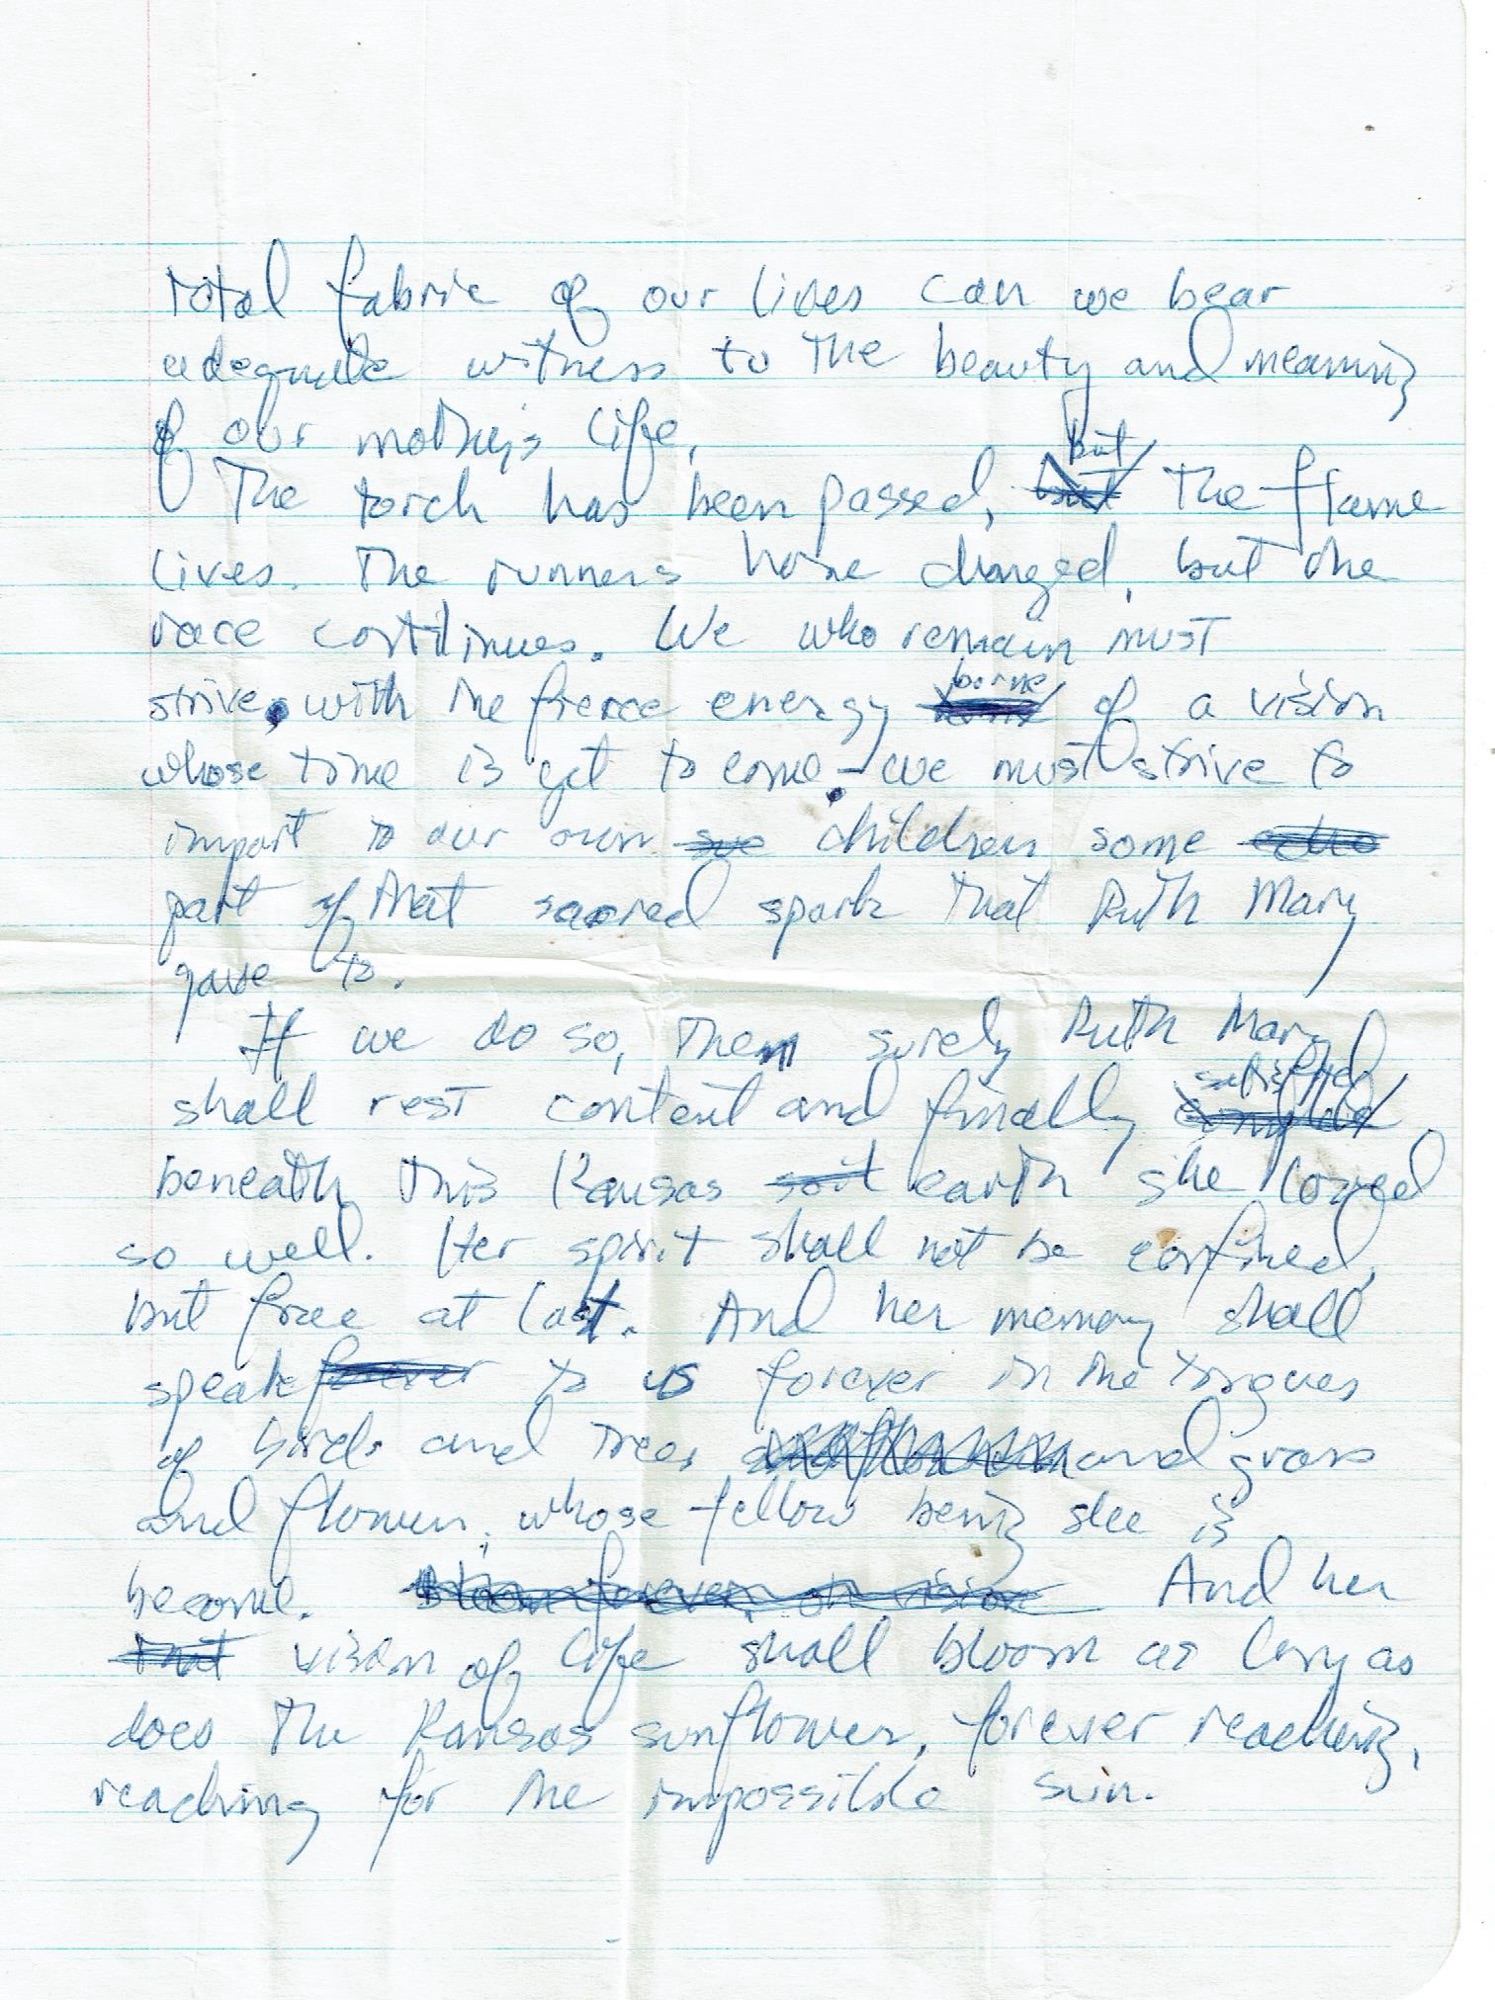 total fabric of our lives can we bear
adequate witness to the beauty and meaning
of our mother's life.
but
The torch has been passed, but the flame
lives. The runners have changed, but the
race continues. We who remain must
borne
strive, with the fierce energy of a vision
whose time is yet to come - we must strive to
impart to our own children some echo
part of that sacred spark that Ruth Mary
gave to.
If we do so, then surely Ruth Mary
satisfied
shall rest content and finally
beneath this Kansas soil earth she loved
so well. Her spirit shall not be confined,
but free at last. And her memory shall
speak forever to us forever in the tongues
of birds and trees and grass
and flowers, whose fellow being she is
become. And her
that vision of life shall bloom as long as
does the Kansas sunflower, forever reaching,
reaching for the impossible sun.